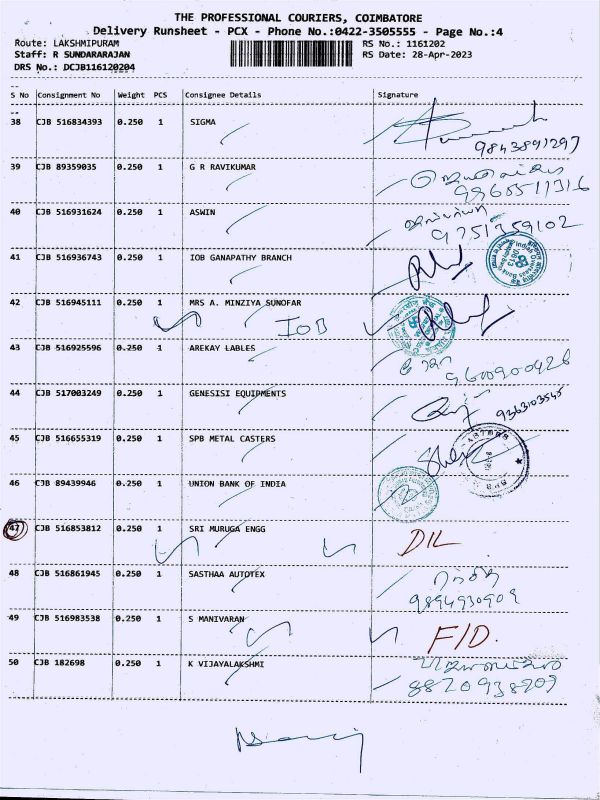 THE PROFESSIONAL COURIERS, COIMBATORE
Delivery Runsheet - PCX - Phone No.:0422-3505555 - Page No.:4
Route: LAKSHMIPURAM RS No.: 1161202
Staff: R SUNDARARAJAN RS Date: 28-Apr-2023
DRS No.: DCJB116120204
S No Consignment No Weight PCS Consignee Details Signature
38 CJB 516834393 0.250 1 SIGMA
9843891297
39 CJB 89359035 0.250 1 G R RAVIKUMAR
9965511316
40 CJB 516931624 0.250 1 ASWIN
9751759102
41 CJB 516936743 0.250 1 IOB GANAPATHY BRANCH
42 CJB 516945111 0.250 1 MRS A. MINZIYA SUNOFAR
IOB
43 CJB 516925596 0.250 1 AREKAY LABLES
9600900426
44 CJB 517003249 0.250 1 GENESISI EQUIPMENTS
9363103545
45 CJB 516655319 0.250 1 SPB METAL CASTERS
46 CJB 89439946 0.250 1 UNION BANK OF INDIA
47 CJB 516853812 0.250 1 SRI MURUGA ENGG
D/L
48 CJB 516861945 0.250 1 SASTHAA AUTOTEX
9894930909
49 CJB 516983538 0.250 1 S MANIVARAN
F/D.
50 CJB 182698 0.250 1 K VIJAYALAKSHMI
8820938209